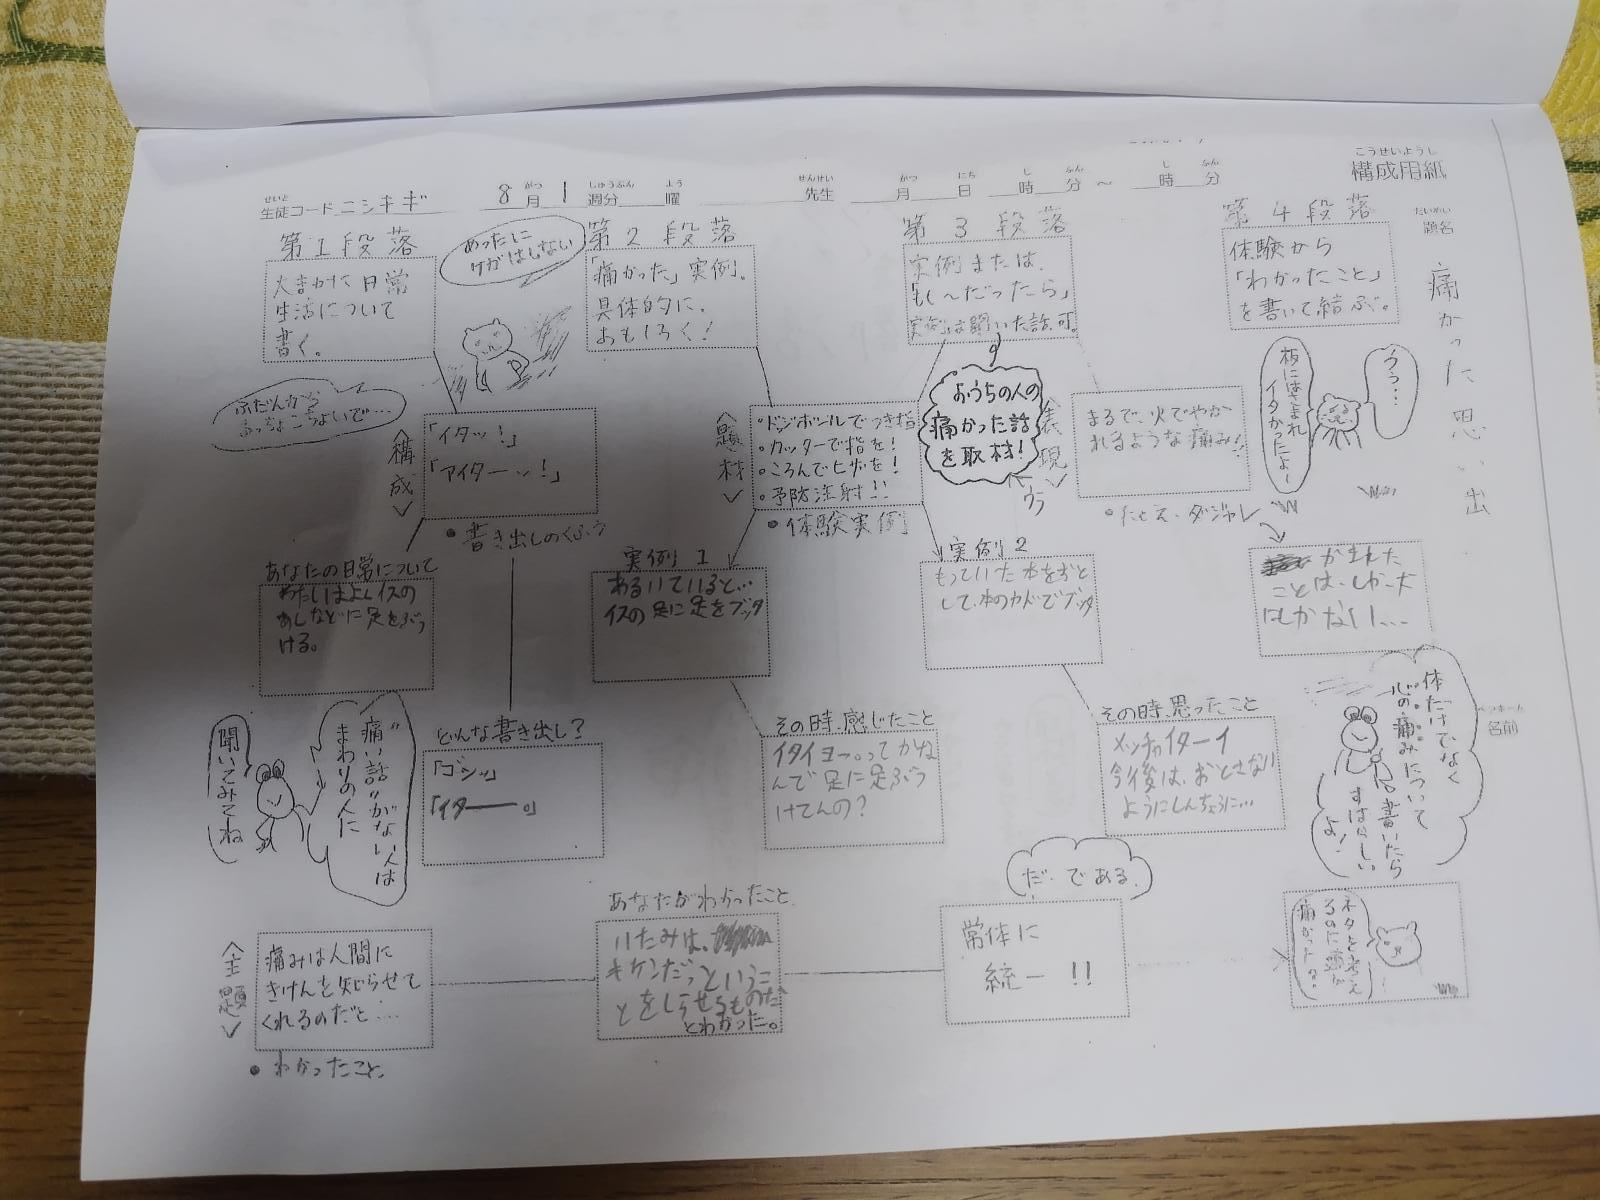 構成用紙
こうせいようし
生徒コード ニシキギ 8月 1週分 曜 先生 月 日 時 分 ～ 時 分
せいと がつ しゅうぶん よう せんせい がつ にち じ ふん じ ふん
題名
だいめい
痛かった思い出
第1段落
大まかな日常
生活について
書く。
めったに
ケガはしない
第2段落
「痛かった」実例。
具体的に。
おもしろく!
第3段落
実例または、
「もし~だったら」
実例は聞いた話可。
第4段落
体験から
「わかったこと」
を書いて結ぶ。
ふだんから
おっちょこちょいで…
〈構成〉
「イタッ!」
「アイターッ!」
・書き出しのくふう
〈題材〉
・ドッジボールでつき指
・カッターで指を!
・ころんでヒザを!
・予防注射!!
・体験実例
おうちの人の
痛かった話
を取材!
〈表現〉
まるで、火でやか
れるような痛み!!
・たとえ・ダジャレ
板にはさまれ
イタかったよ~
うぅ…
あなたの日常について
わたしはよくイスの
あしなどに足をぶつ
ける。
実例1
あるいていると…
イスの足に足をブッタ
実例2
もっていた本をおと
して、本のカドでブッタ
かまれた
ことは、しかった
はしかない…
どんな書き出し?
「ゴンッ」
「イター――。」
その時、感じたこと
イタイヨー。ってかな
んで足に足ぶつ
けてんの?
その時、思ったこと
メッチャイターイ
今後は、おとさない
ようにしんちょうに…
“痛い話”がない人は
まわりの人に
聞いてみてね
体だけでなく
心の痛みについて
書いたら
すばらしい
よ!
名前
〈主題〉
痛みは人間に
きけんを知らせて
くれるのだと…
・わかったこと
あなたがわかったこと
いたみは、
キケンだっというこ
とをしらせるものだ
とわかった。
だ・である
常体に
統一!!
ネタを考え
るのに頭が
痛かった?